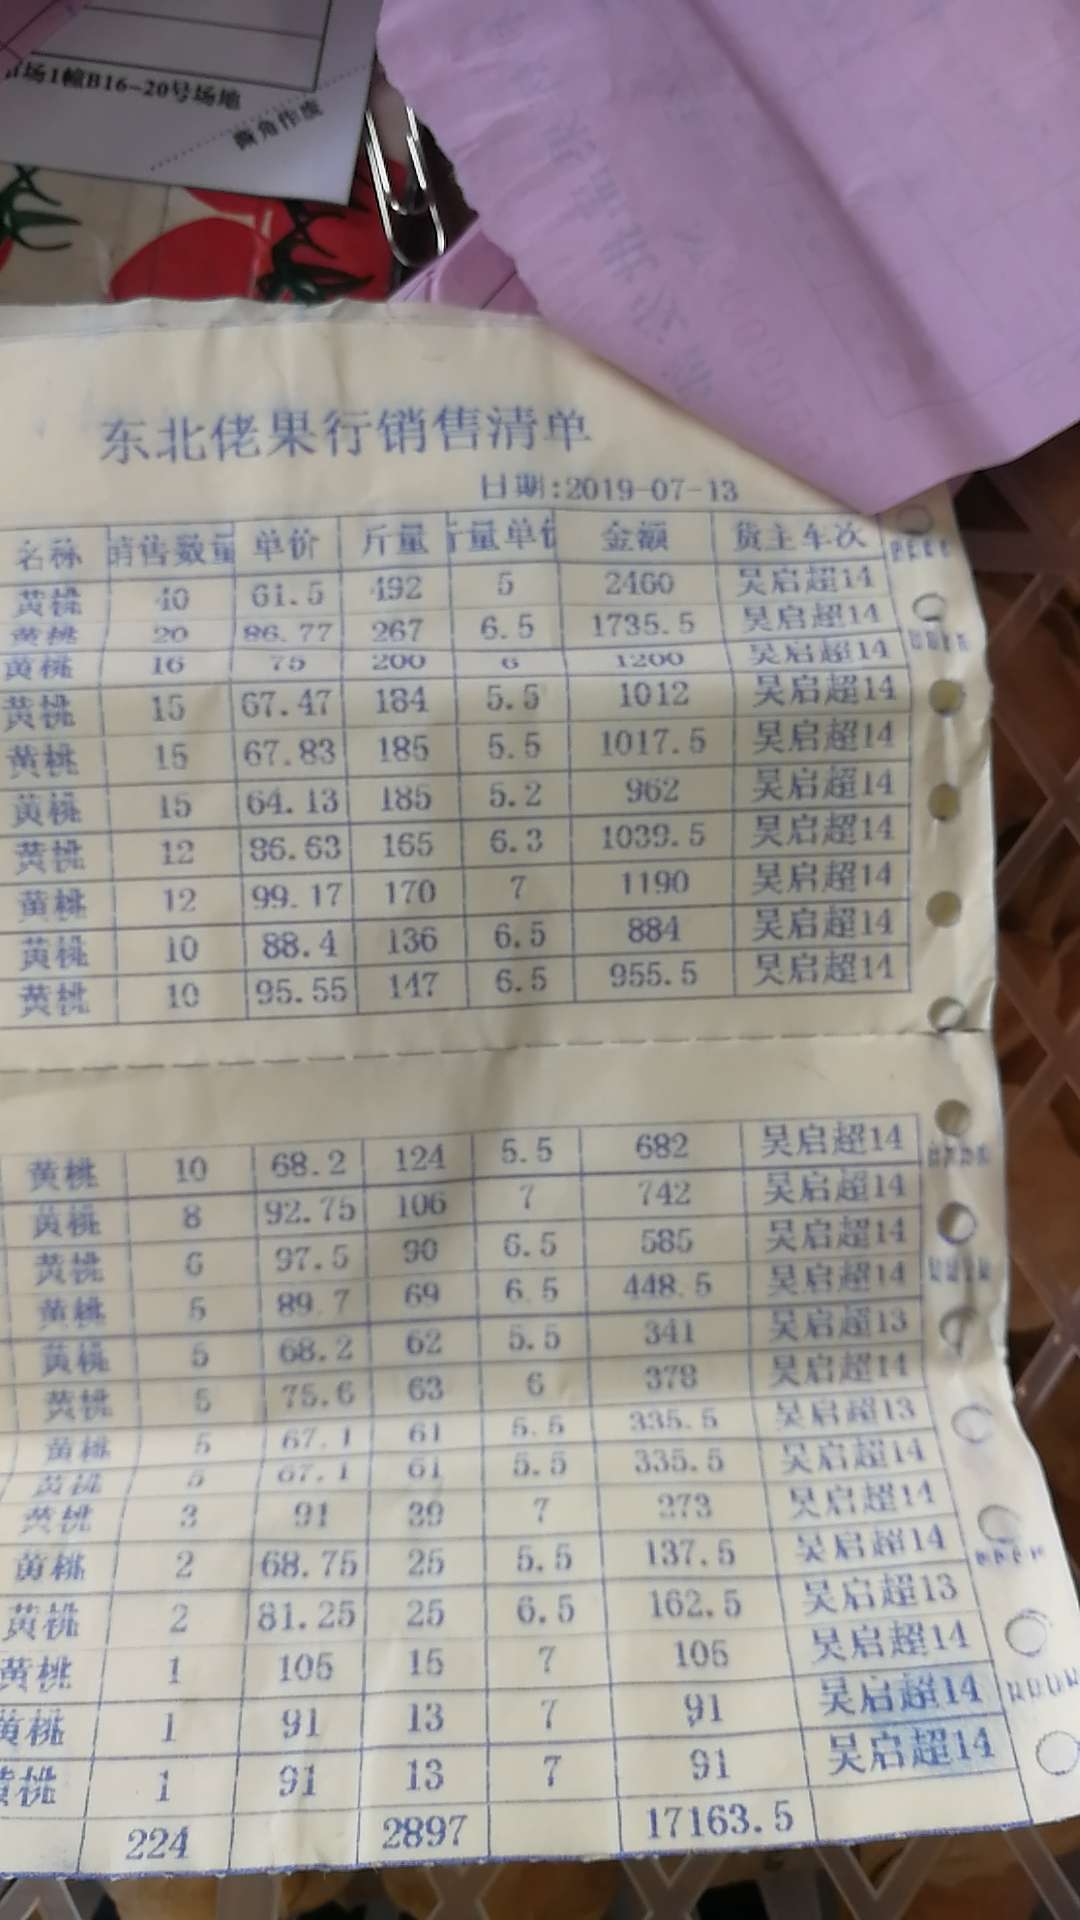 市场1幢B16-20号场地
撕角作废
东北佬果行销售清单
日期:2019-07-13
名称 销售数量 单价 斤量 斤量单价 金额 货主车次
黄桃 40 61.5 492 5 2460 吴启超14
黄桃 20 86.77 267 6.5 1735.5 吴启超14
黄桃 16 75 200 6 1200 吴启超14
黄桃 15 67.47 184 5.5 1012 吴启超14
黄桃 15 67.83 185 5.5 1017.5 吴启超14
黄桃 15 64.13 185 5.2 962 吴启超14
黄桃 12 86.63 165 6.3 1039.5 吴启超14
黄桃 12 99.17 170 7 1190 吴启超14
黄桃 10 88.4 136 6.5 884 吴启超14
黄桃 10 95.55 147 6.5 955.5 吴启超14
黄桃 10 68.2 124 5.5 682 吴启超14
黄桃 8 92.75 106 7 742 吴启超14
黄桃 6 97.5 90 6.5 585 吴启超14
黄桃 5 89.7 69 6.5 448.5 吴启超14
黄桃 5 68.2 62 5.5 341 吴启超13
黄桃 5 75.6 63 6 378 吴启超14
黄桃 5 67.1 61 5.5 335.5 吴启超13
黄桃 5 67.1 61 5.5 335.5 吴启超14
黄桃 3 91 39 7 273 吴启超14
黄桃 2 68.75 25 5.5 137.5 吴启超14
黄桃 2 81.25 25 6.5 162.5 吴启超13
黄桃 1 105 15 7 105 吴启超14
黄桃 1 91 13 7 91 吴启超14
黄桃 1 91 13 7 91 吴启超14
224 2897 17163.5